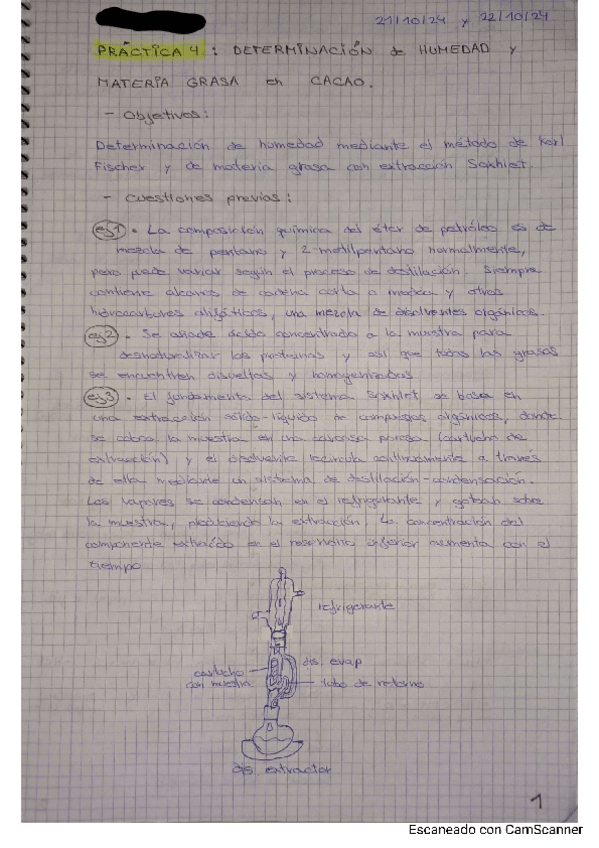 21/10/24 y 22/10/24
PRÁCTICA 4 : DETERMINACIÓN de HUMEDAD y
MATERIA GRASA en CACAO.
- Objetivos:
Determinación de humedad mediante el método de Karl
Fischer y de materia grasa con extracción Soxhlet.
- Cuestiones previas:
ej1 • La composición química del éter de petróleo es de
mezcla de pentano y 2-metilpentano normalmente,
pero puede variar según el proceso de destilación. Siempre
contiene alcanos de cadena corta o media y otros
hidrocarburos alifáticos, una mezcla de disolventes orgánicos.
ej2 • Se añade ácido concentrado a la muestra para
desnaturalizar las proteínas y así que todas las grasas
se encuentren disueltas y homogeneizadas
ej3 • El fundamento del sistema Soxhlet se basa en
una extracción sólido-líquido de compuestos orgánicos, donde
se coloca la muestra en una carcasa porosa (cartucho de
extracción) y el disolvente recircula continuamente a través
de ella mediante un sistema de destilación-condensación.
Los vapores se condensan en el refrigerante y gotean sobre
la muestra, produciendo la extracción. La concentración del
componente extraído en el reservorio inferior aumenta con el
tiempo
refrigerante
dis. evap
cartucho
con muestra
tubo de retorno
dis. extractor
1
Escaneado con CamScanner